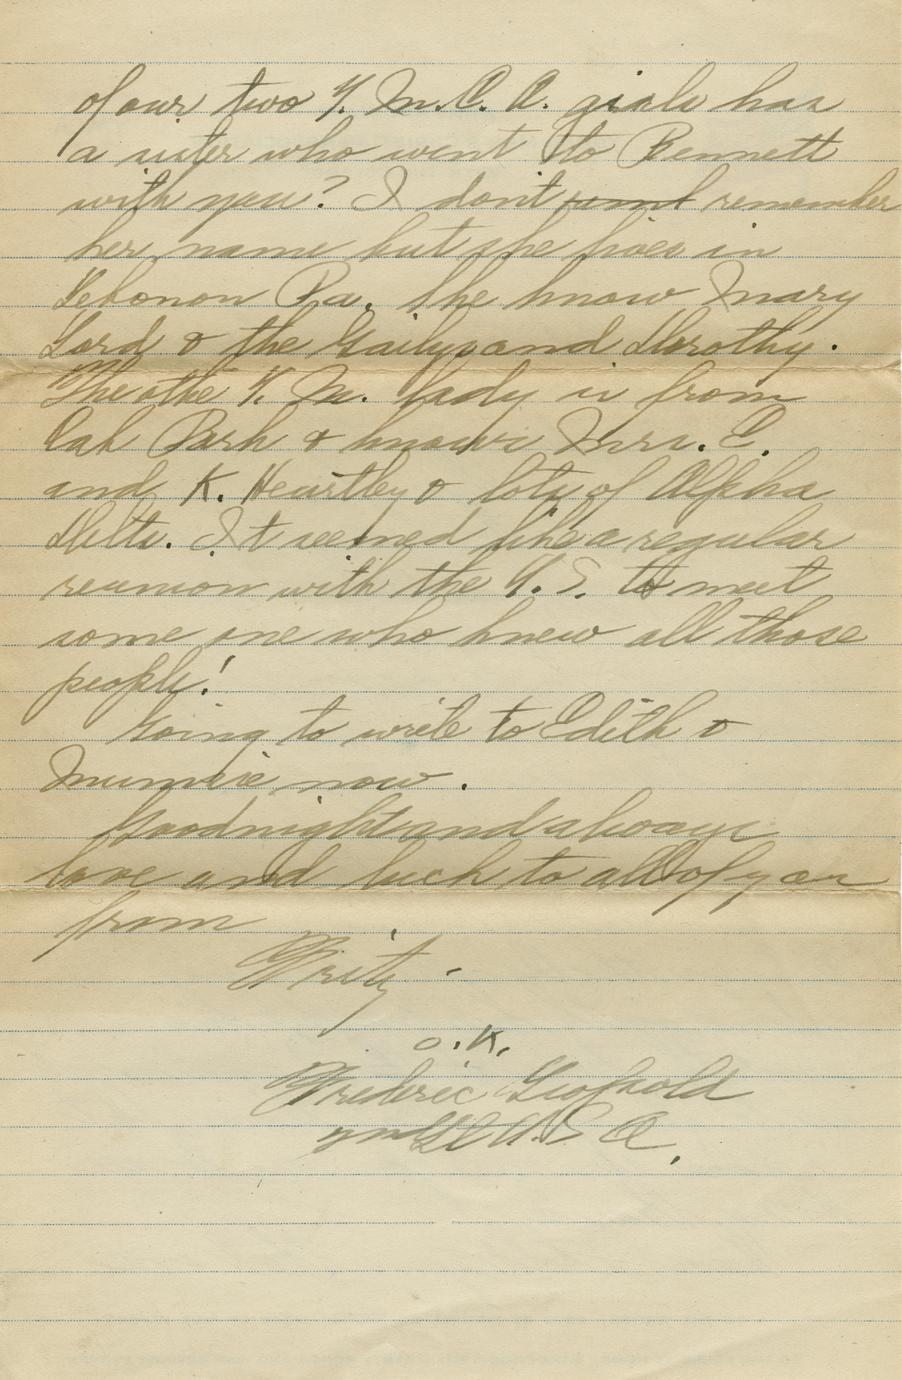 of our two Y. M. C. A. girls has
a sister who went to Bennett
with you? I don't remember
her name but she lives in
Lebonon Pa. She know Mary
Lord & the Gailys and Dorothy.
The othe Y. M. lady is from
Oak Park & knows Mrs. E.
and K. Heurtley & lots of Alpha
Delts. It seemed like a regular
reunion with the U. S. to meet
some one who knew all those
people!
Going to write to Edith &
Mummie now.
Goodnight and always
love and luck to all of you
from
Fritz -
O.K.
Frederic Leopold
U.S.A.